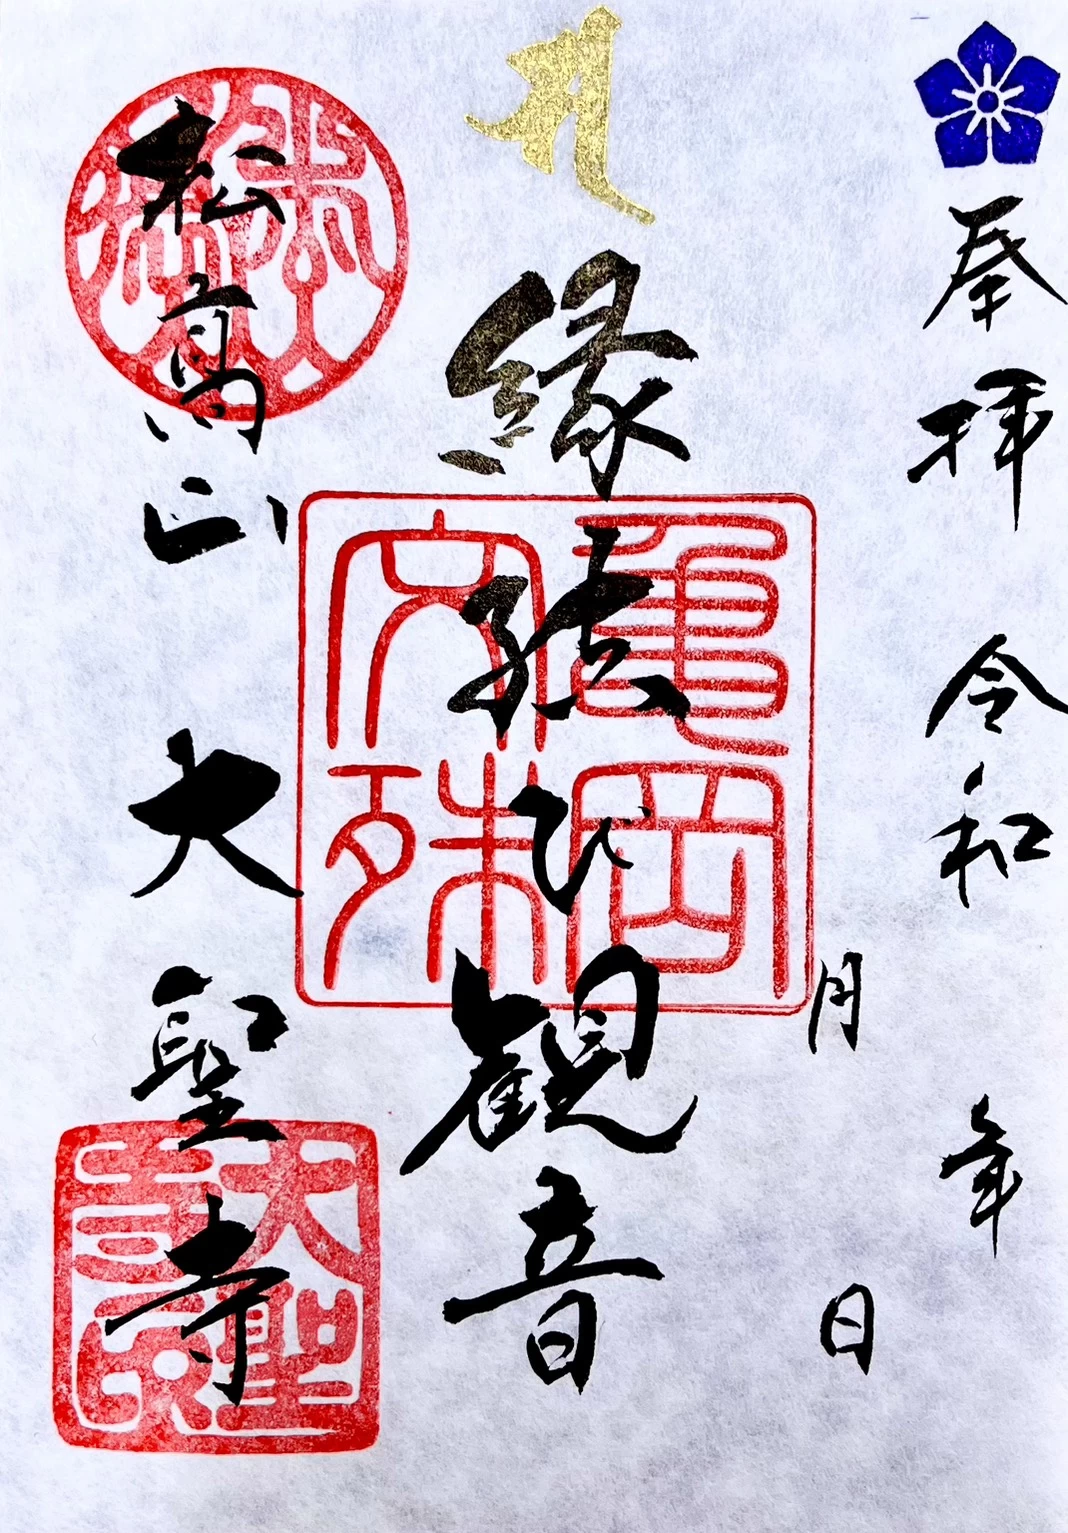 奉拝
令和 年
月 日
サ
縁結び観音
亀岡
文殊
松高山
大聖寺